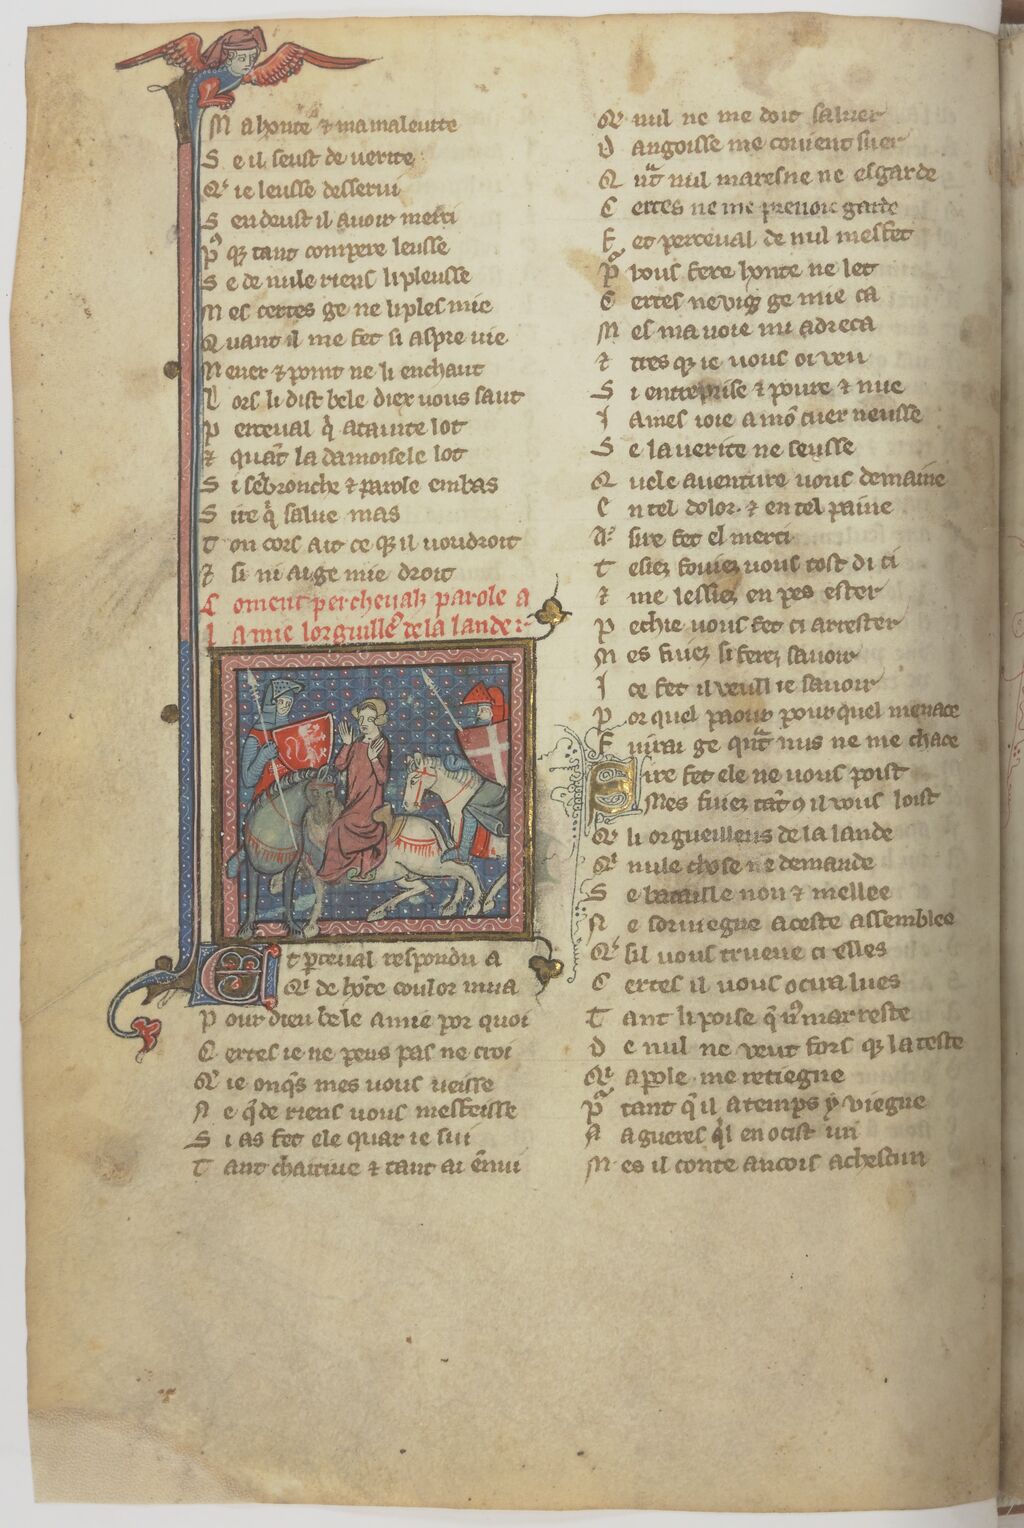 M a honte & ma maleurte
S e il seust de uerite
Q' ie leusse desserui
S en deust il auoir merci
P' q; tant compere leusse
S e de nule riens li pleusse
M es certes ge ne li ples mie
Q uant il me fet si aspre uie
N euer & point ne li enchaut
L ors li dist bele diex uous saut
P erceual q̇ atainte lot
& quāt la damoisele lot
S i sēbronche & parole en bas
S ire q̇ salue mas
T on cors ait ce q; il uoudroit
& si ni ai ge mie droit
C oment percheuax parole a
L amie lorguille' de la lande
E t p̄ceual respondu a
Q' de hōte coulor mua
P our dieu bele amie por quoi
C ertes ie ne peus pas ne croi
Q' ie onq̄s mes uous ueisse
N e q̄ de riens uous mesfeisse
S i as fet ele quar ie sui
T ant chaitiue & tant ai ēnui
Q' nul ne me doit saluer
D angoisse me couient suer
Q nāt nul maresne ne esgarde
C ertes ne me prenoie garde
F et perceual de nul mesfet
P' uous fere honte ne let
C ertes ne uiq; ge mie ca
M es ma uoie mi adreca
& tres q; ie uous oi ueu
S i entreprise & poure & nue
I ames ioie a mō cuer neusse
S e la uerite ne seusse
Q uele auenture uous demaine
E n tel dolor & en tel paine
A' sire fet el merci
T esiez fouiez uous tost di ci
& me lessiez en pes ester
P echie uous fet ci arrester
M es fuiez si ferez sauoir
I ce fet il ueull ie sauoir
P or quel paour pour quel menace
F uirai ge qāt nus ne me chace
S ire fet ele ne uous poist
Mes fuiez tāt q̄ il uous loist
Q' li orgueilleus de la lande
Q' nule chose ne demande
S e bataille non & mellee
N e soruiegne a ceste assemblee
Q' sil uous trueue ci elles
C ertes il uous ocira lues
T ant li poise q̄ n̄ marreste
D e nul ne ueut fors q; la teste
Q' a pole me retiegne
P' tant q̄ il a temps y uiegne
N a gueres q̇l en ocist un
M es il conte ancois a chescun